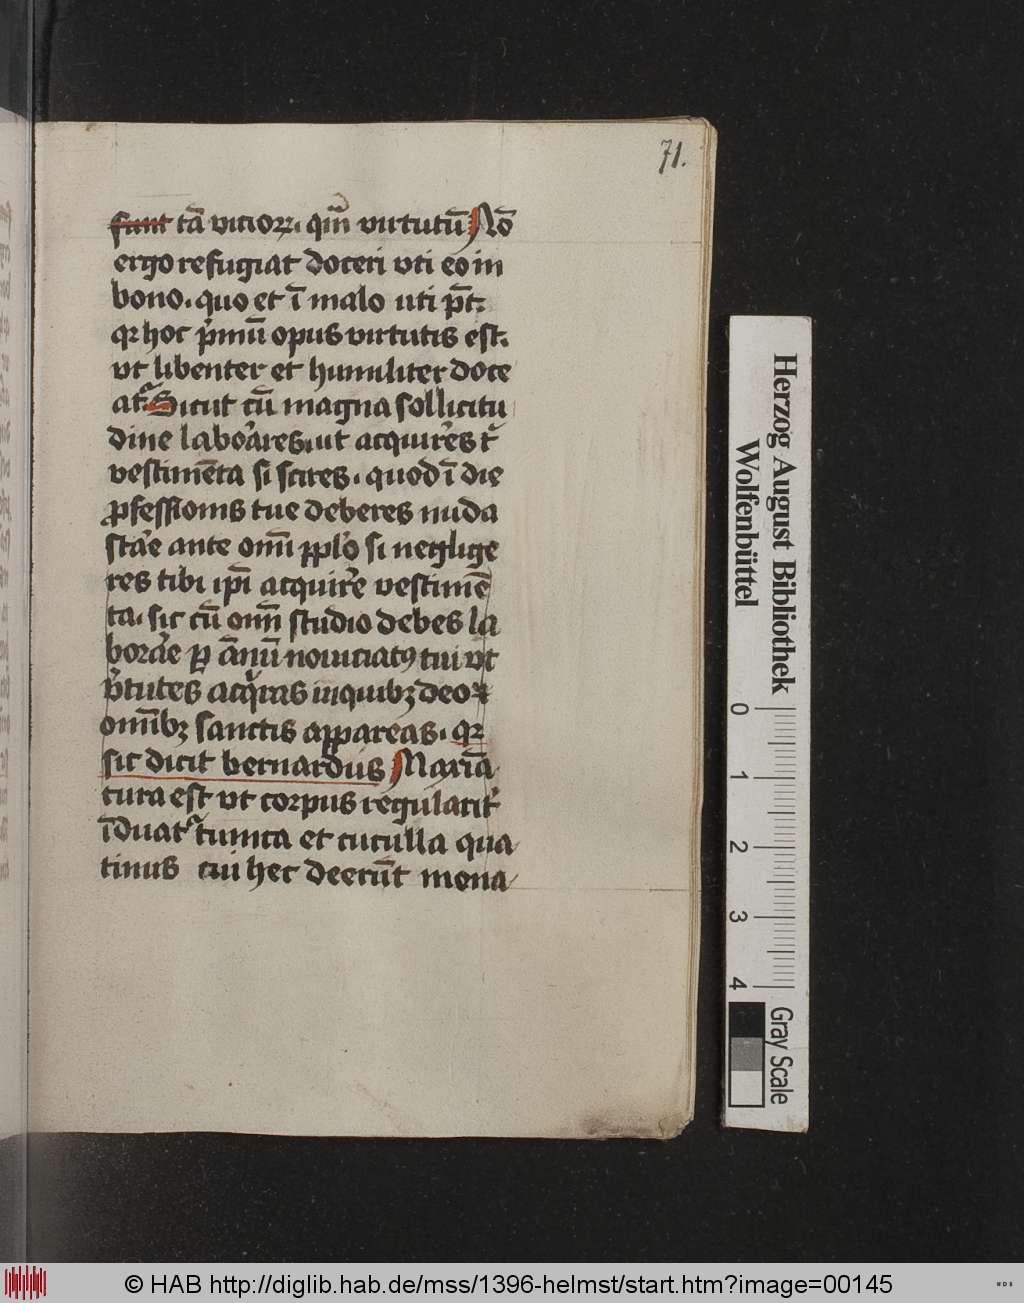 71.
sunt tā vicioꝝ. qm̄ virtutū Nō
ergo refugiat doceri vti eo in
bono. quo et ī malo uti pt̄.
qꝛ hoc p̓mū opus virtutis est.
vt libenter et humiliter doce
atᷣ. Sicut cū magna sollicitu
dine labor̓ares. ut acquir̓es tᷣ
vestimēta si scires. quod ī die
ꝓfessionis tue deberes nuda
star̓e ante om̄i pplo̓ si neglige
res tibi ip̄i acquir̓e vestimē
ta. sic cū om̄i studio debes la
borar̓e ꝑ ānū nouiciatꝰ tui vt
v̓tutes acq̓ras in quibꝫ deo ⁊
om̄ibꝫ sanctis appareas. qꝛ
sic dicit bernardus Maxīa
cura est vt corpus regularit̓
īduatᷣ tunica et cuculla qua
tinus cui hec deerūt mona
Herzog August Bibliothek
Wolfenbüttel
0 1 2 3 4
Gray Scale
© HAB http://diglib.hab.de/mss/1396-helmst/start.htm?image=00145